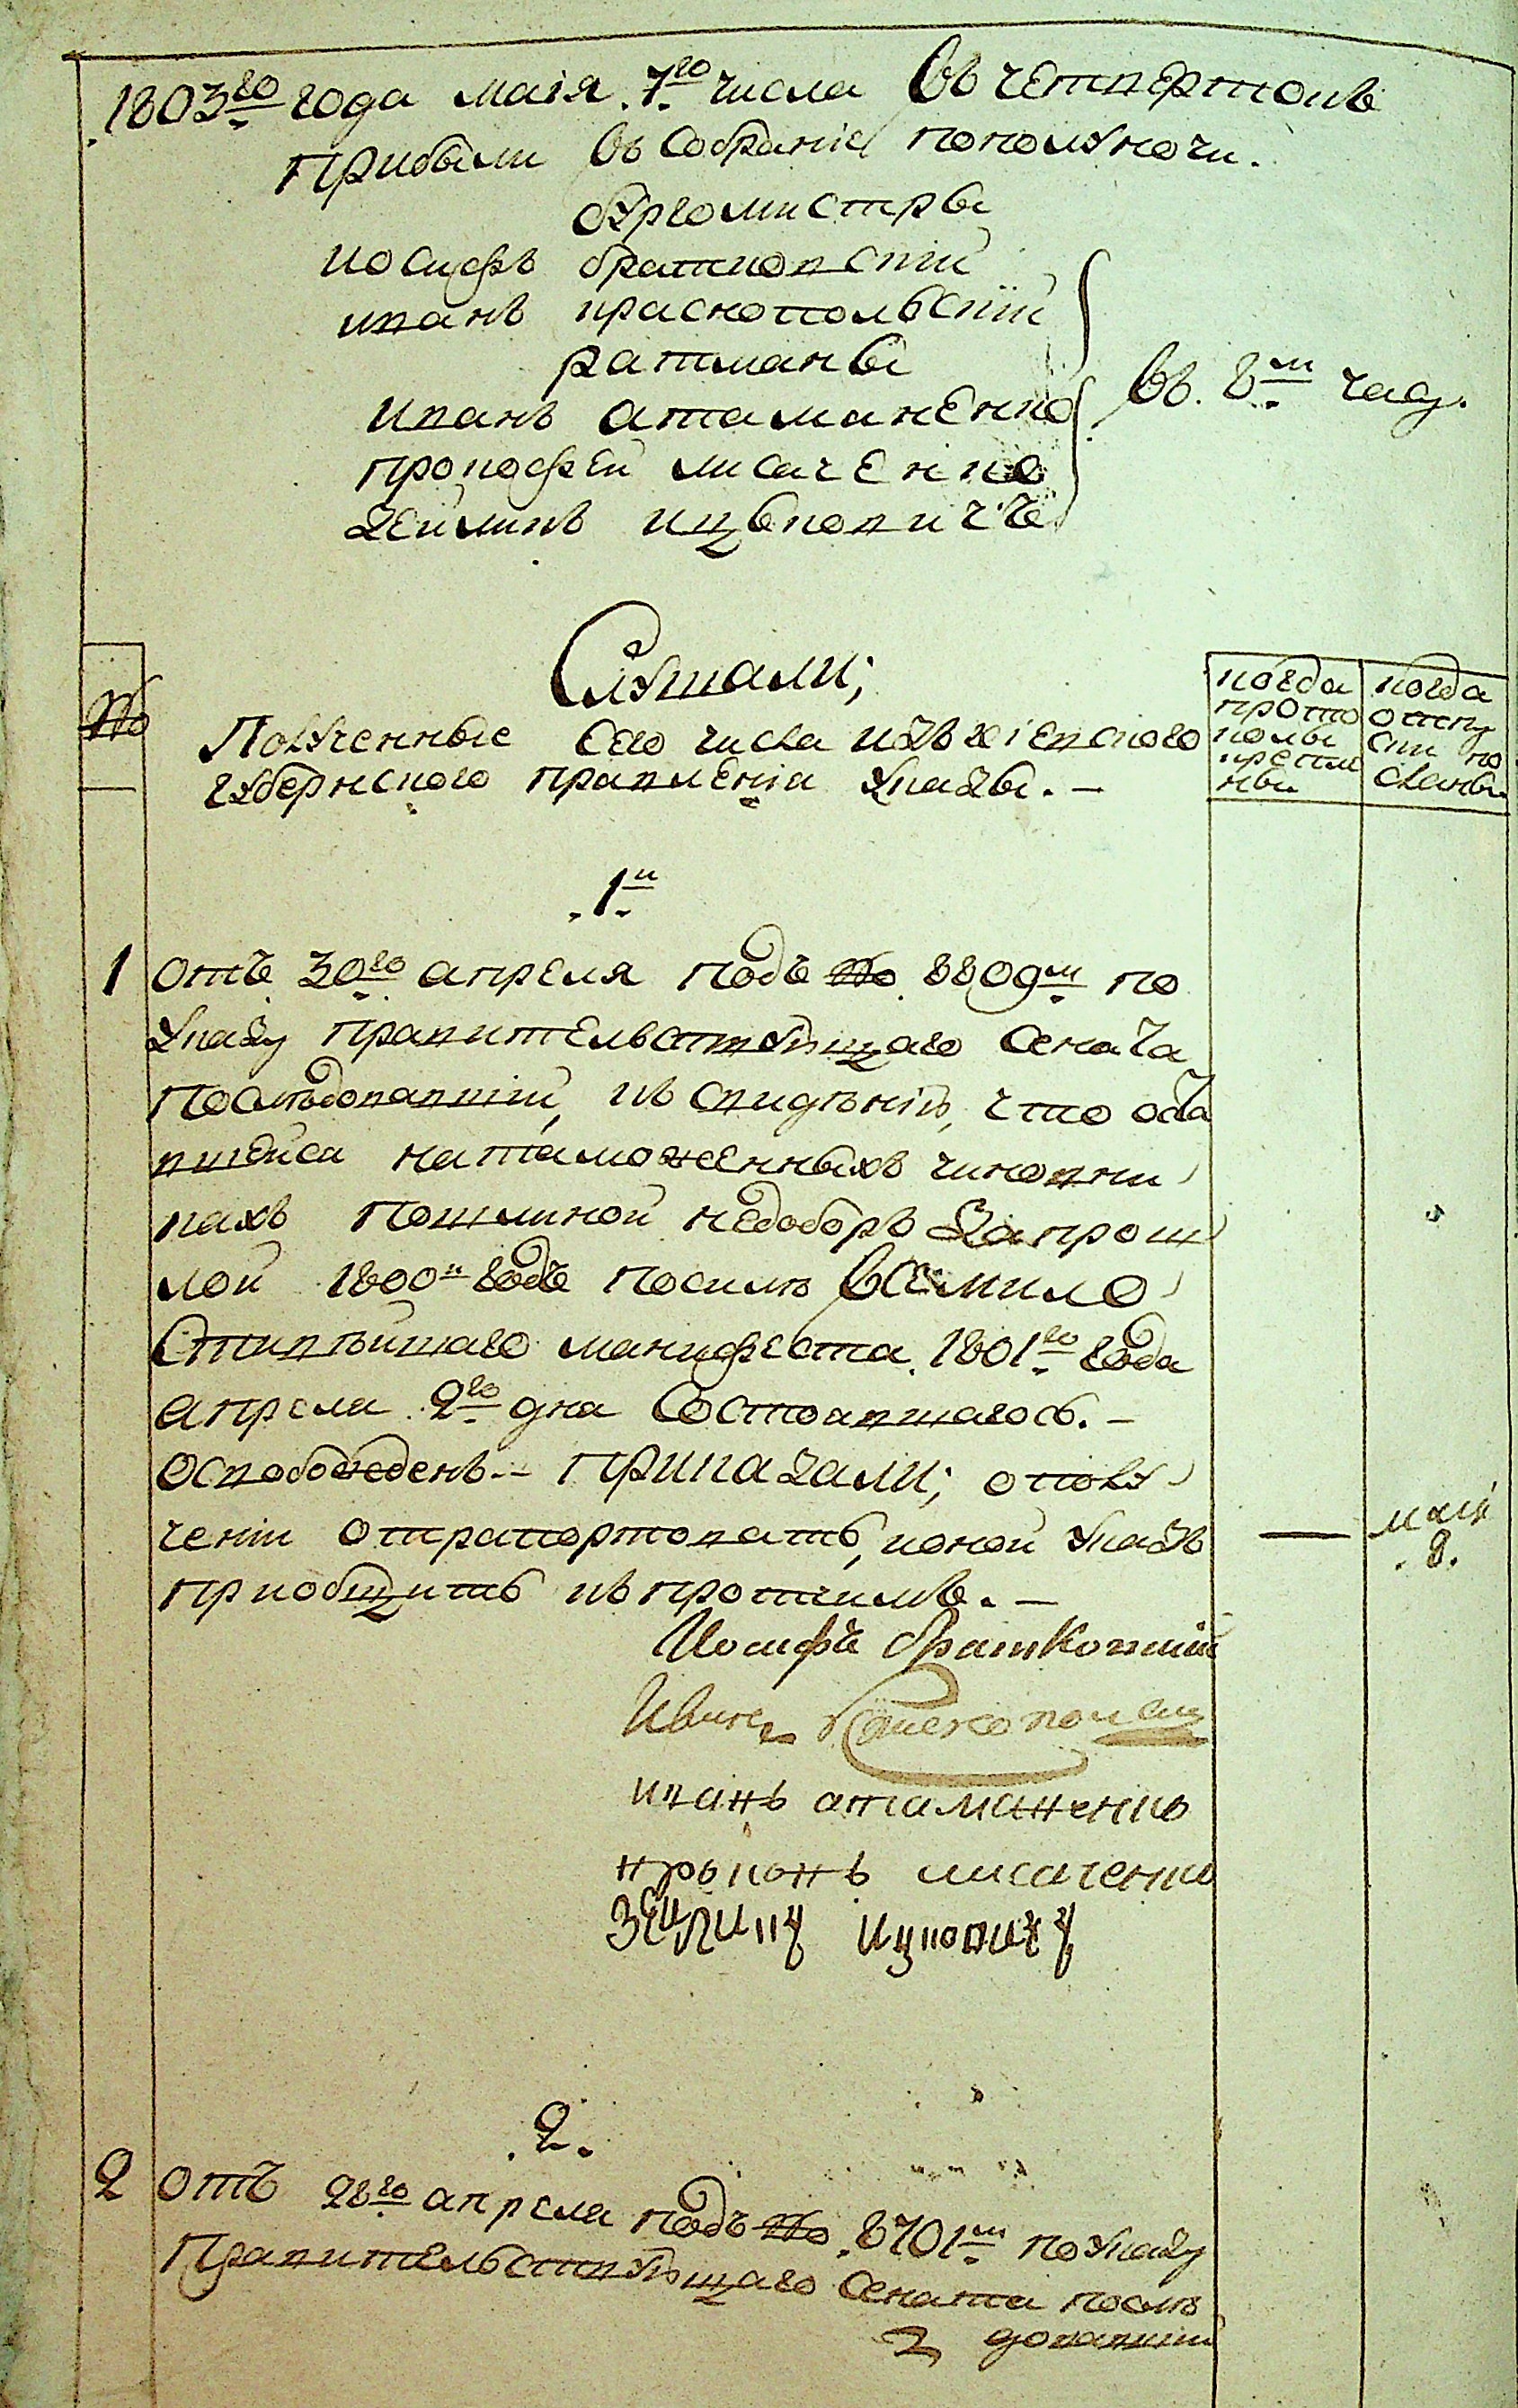 1803го года маія 7го числа въ четвертокъ
Прибыли въ Собраніе пополуночи.
бургомистры
иосифъ братковскій
иванъ краснопольскій
ратманы
иванъ атаманенко
прокофей лисаченко
Зейликъ ицъковичъ
въ. 8м часу.
Слушали;
№
Полученные сего числа изъ кіевского
губернского правленія указы. —
когда
прото
колы
крепле
ны
когда
отпу
ски по
сланы
1й
1 отъ 30го апреля подъ № 8809м по
указу правительствующаго сената
последовавшій, къ сведенію, что ока
вшейся на таможенныхъ чиновни
кахъ пошлиной недоборъ за прош
лой 1800й годъ посиле всемило
стивейшаго манифеста 1801го года
апреля 2го дня состоявшагось. —
освобожденъ. — Приказали; ополу
ченіи отрапортовать, коной указъ
приобщить къ протчимъ. —
маія
8.
Иосифъ братковский
Иванъ
иванъ атаманенко
лисаченко
Зейлику ицковичу
2.
2 отъ 28го апреля подъ № 8701м по указу
Правительствующаго Сената после
довавшій